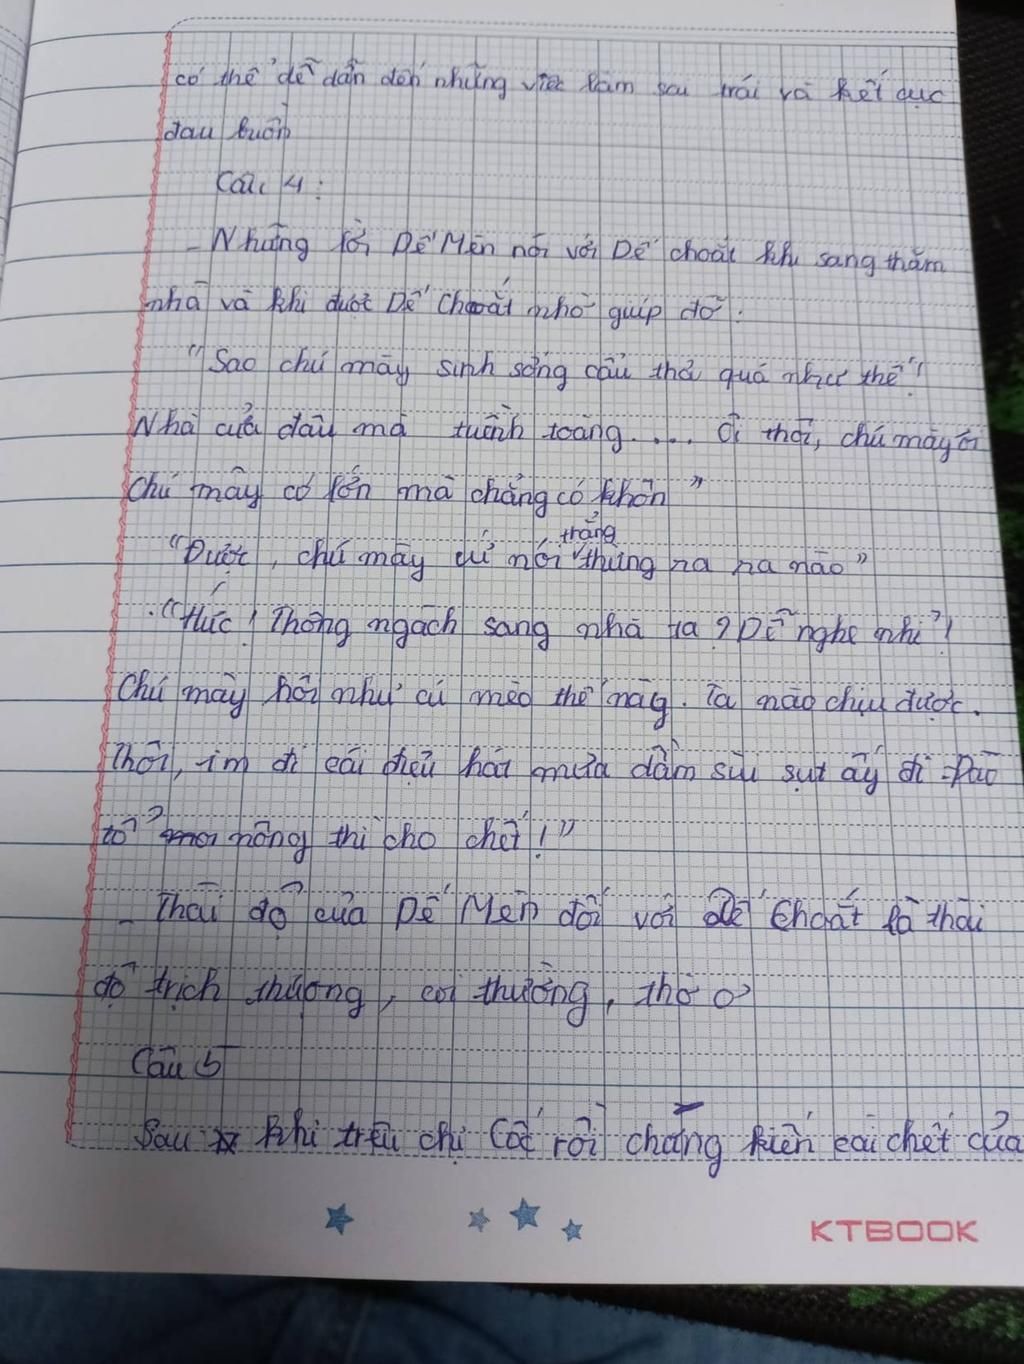 có thể dễ dẫn đến những việc làm sai trái và kết cục
đau buồn
Câu 4:
- Những lời Dế Mèn nói với Dế choắt khi sang thăm
nhà và khi được Dế Choắt nhờ giúp đỡ:
"Sao chú mày sinh sống cẩu thả quá như thế!
Nhà cửa đâu mà tuềnh toàng.... Ôi thôi, chú mày ơi
Chú mày có lớn mà chẳng có khôn"
"Được, chú mày cứ nói thẳng thừng ra ra nào"
"Hức! Thông ngách sang nhà ta? Dế nghe nhỉ!
Chú mày hôi như cú mèo thế này. Ta nào chịu được.
Thôi, im đi cái điệu hát mưa dầm sùi sụt ấy đi. Đào
tổ nông thì cho chết!"
- Thái độ của Dế Mèn đối với Dế Choắt là thái
độ trịch thượng, coi thường, thờ ơ
Câu 5
Sau khi trêu chị Cốc rồi chứng kiến cái chết của
KTBOOK